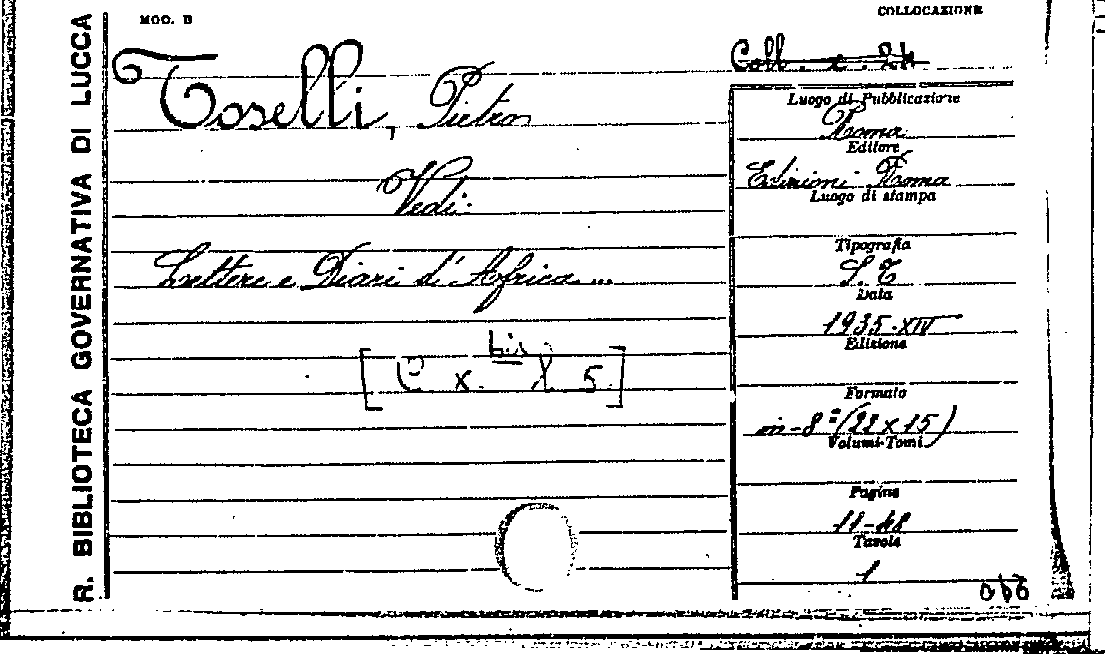 MOD. B
COLLOCAZIONE
R. BIBLIOTECA GOVERNATIVA DI LUCCA
Coll. c. 24
Toselli, Pietro
Vedi:
Lettere e Diari d'Africa ...
[C x bis l 5]
Luogo di Pubblicazione
Roma
Editore
Edizioni Roma
Luogo di stampa
Tipografia
S. T
Data
1935-XIV
Edizione
Formato
in-8º (22 x 15)
Volumi-Tomi
Pagine
11-48
Tavole
1